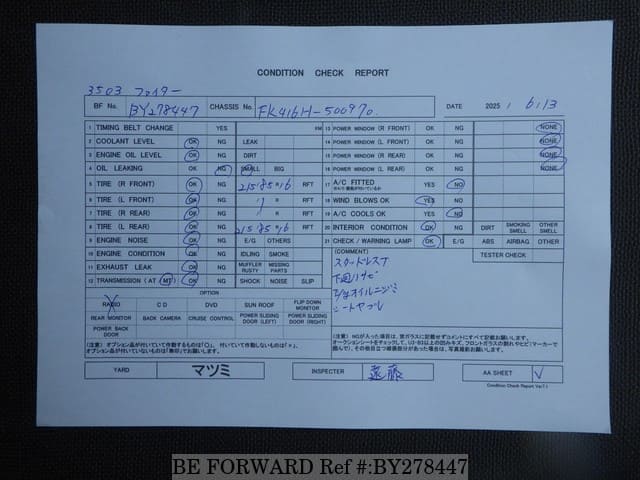 CONDITION CHECK REPORT
3503 ファイター
BF No. BY278447 CHASSIS No. FK416H-500970 DATE 2025 , 6 , 13
1 TIMING BELT CHANGE YES KM 13 POWER WINDOW (R FRONT) OK NG NONE
2 COOLANT LEVEL OK NG LEAK 14 POWER WINDOW (L FRONT) OK NG NONE
3 ENGINE OIL LEVEL OK NG DIRT 15 POWER WINDOW (R REAR) OK NG NONE
4 OIL LEAKING OK NG SMALL BIG 16 POWER WINDOW (L REAR) OK NG NONE
5 TIRE (R FRONT) OK NG 215.85 16 RFT 17 A/C FITTED YES NO
6 TIRE (L FRONT) OK NG 〃 RFT 18 WIND BLOWS OK YES NO
7 TIRE (R REAR) OK NG RFT 19 A/C COOLS OK YES NO
8 TIRE (L REAR) OK NG 215.85 16 RFT 20 INTERIOR CONDITION OK NG DIRT SMOKING SMELL OTHER SMELL
9 ENGINE NOISE OK NG E/G OTHERS 21 CHECK / WARNING LAMP OK E/G ABS AIRBAG OTHER
10 ENGINE CONDITION OK NG IDLING SMOKE (COMMENT) TESTER CHECK
11 EXHAUST LEAK OK NG MUFFLER RUSTY MISSING PARTS
12 TRANSMISSION (AT MT) OK NG SHOCK NOISE SLIP
スタッドレスT
下回りサビ
シートヤブレ
OPTION
RADIO CD DVD SUN ROOF FLIP DOWN MONITOR
REAR MONITOR BACK CAMERA CRUISE CONTROL POWER SLIDING DOOR (LEFT) POWER SLIDING DOOR (RIGHT)
POWER BACK DOOR
(注意) オプション品が付いていて作動するものは「○」、付いていて作動しないものは「×」、
オプション品が付いていないものは「無印」でお願いします。
(注意) NGが入った項目は、世ガラスに記載せずコメントにすべて記載お願いします。
YARD マツミ INSPECTER 遠藤 AA SHEET V
Condition Check Report Ver7.1
BE FORWARD Ref #:BY278447